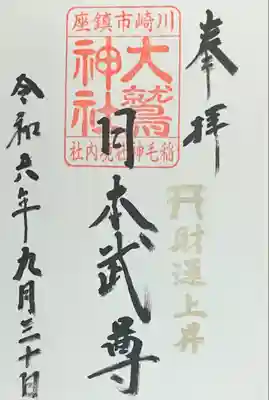 奉拝
財運上昇
川崎市鎮座
大鷲
神社
稲毛神社境内社
日本武尊
令和六年九月三十日